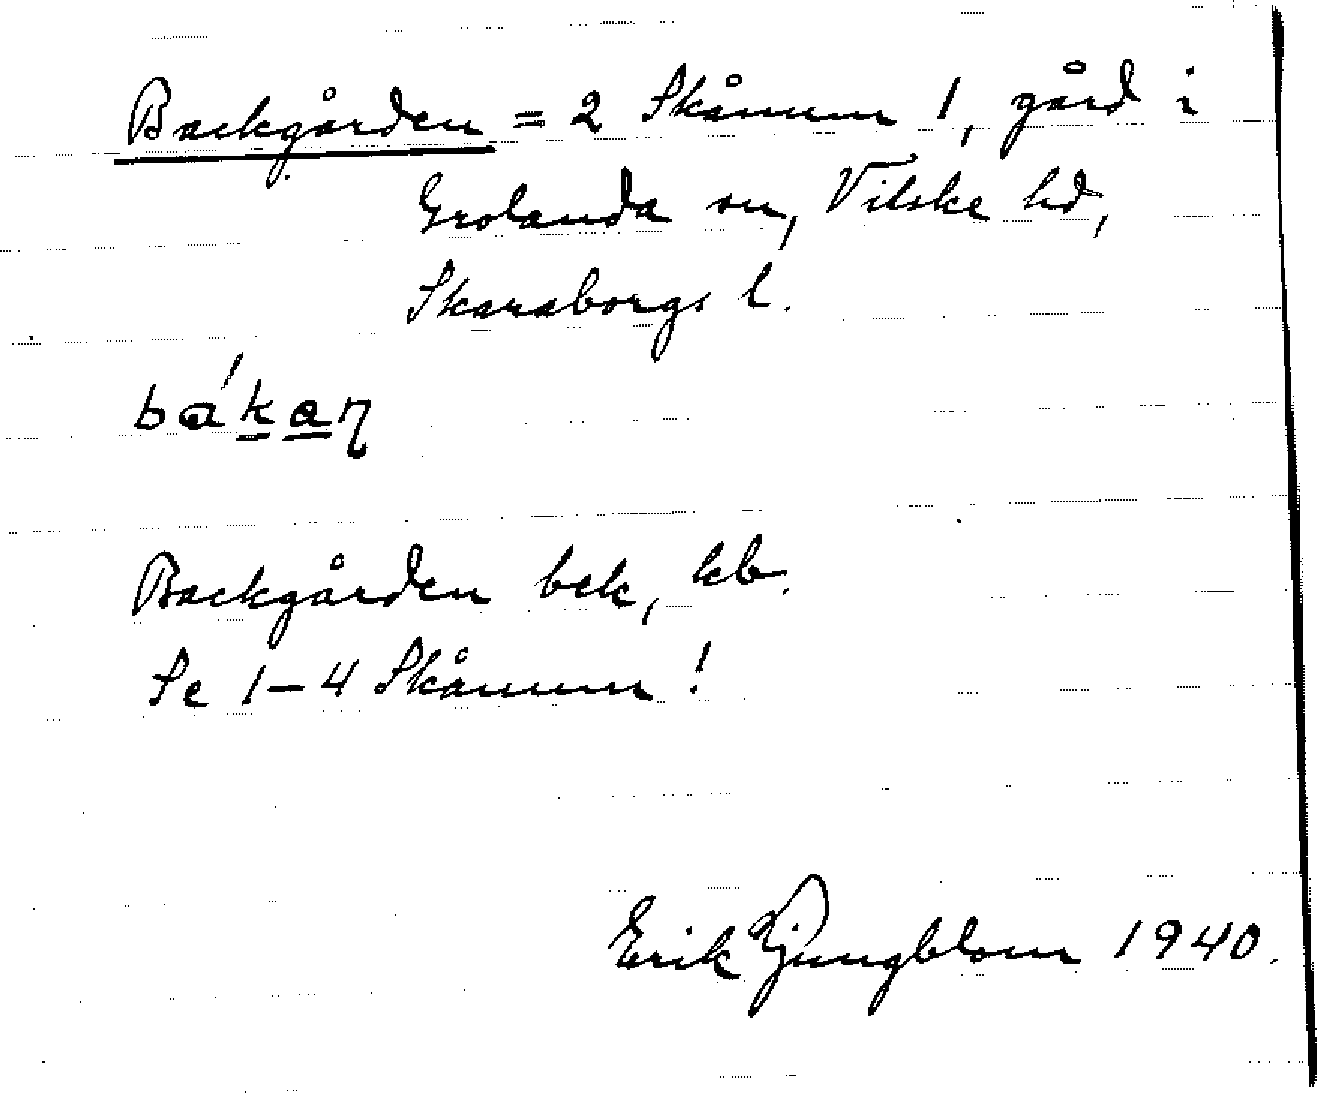 Backgården = 2 Skånum 1, gård i
Grolanda sn, Vilske hd,
Skaraborgs l.
bá́kaɳ
Backgården bek, kb.
Se 1-4 Skånum!
Erik Ljungblom 1940.